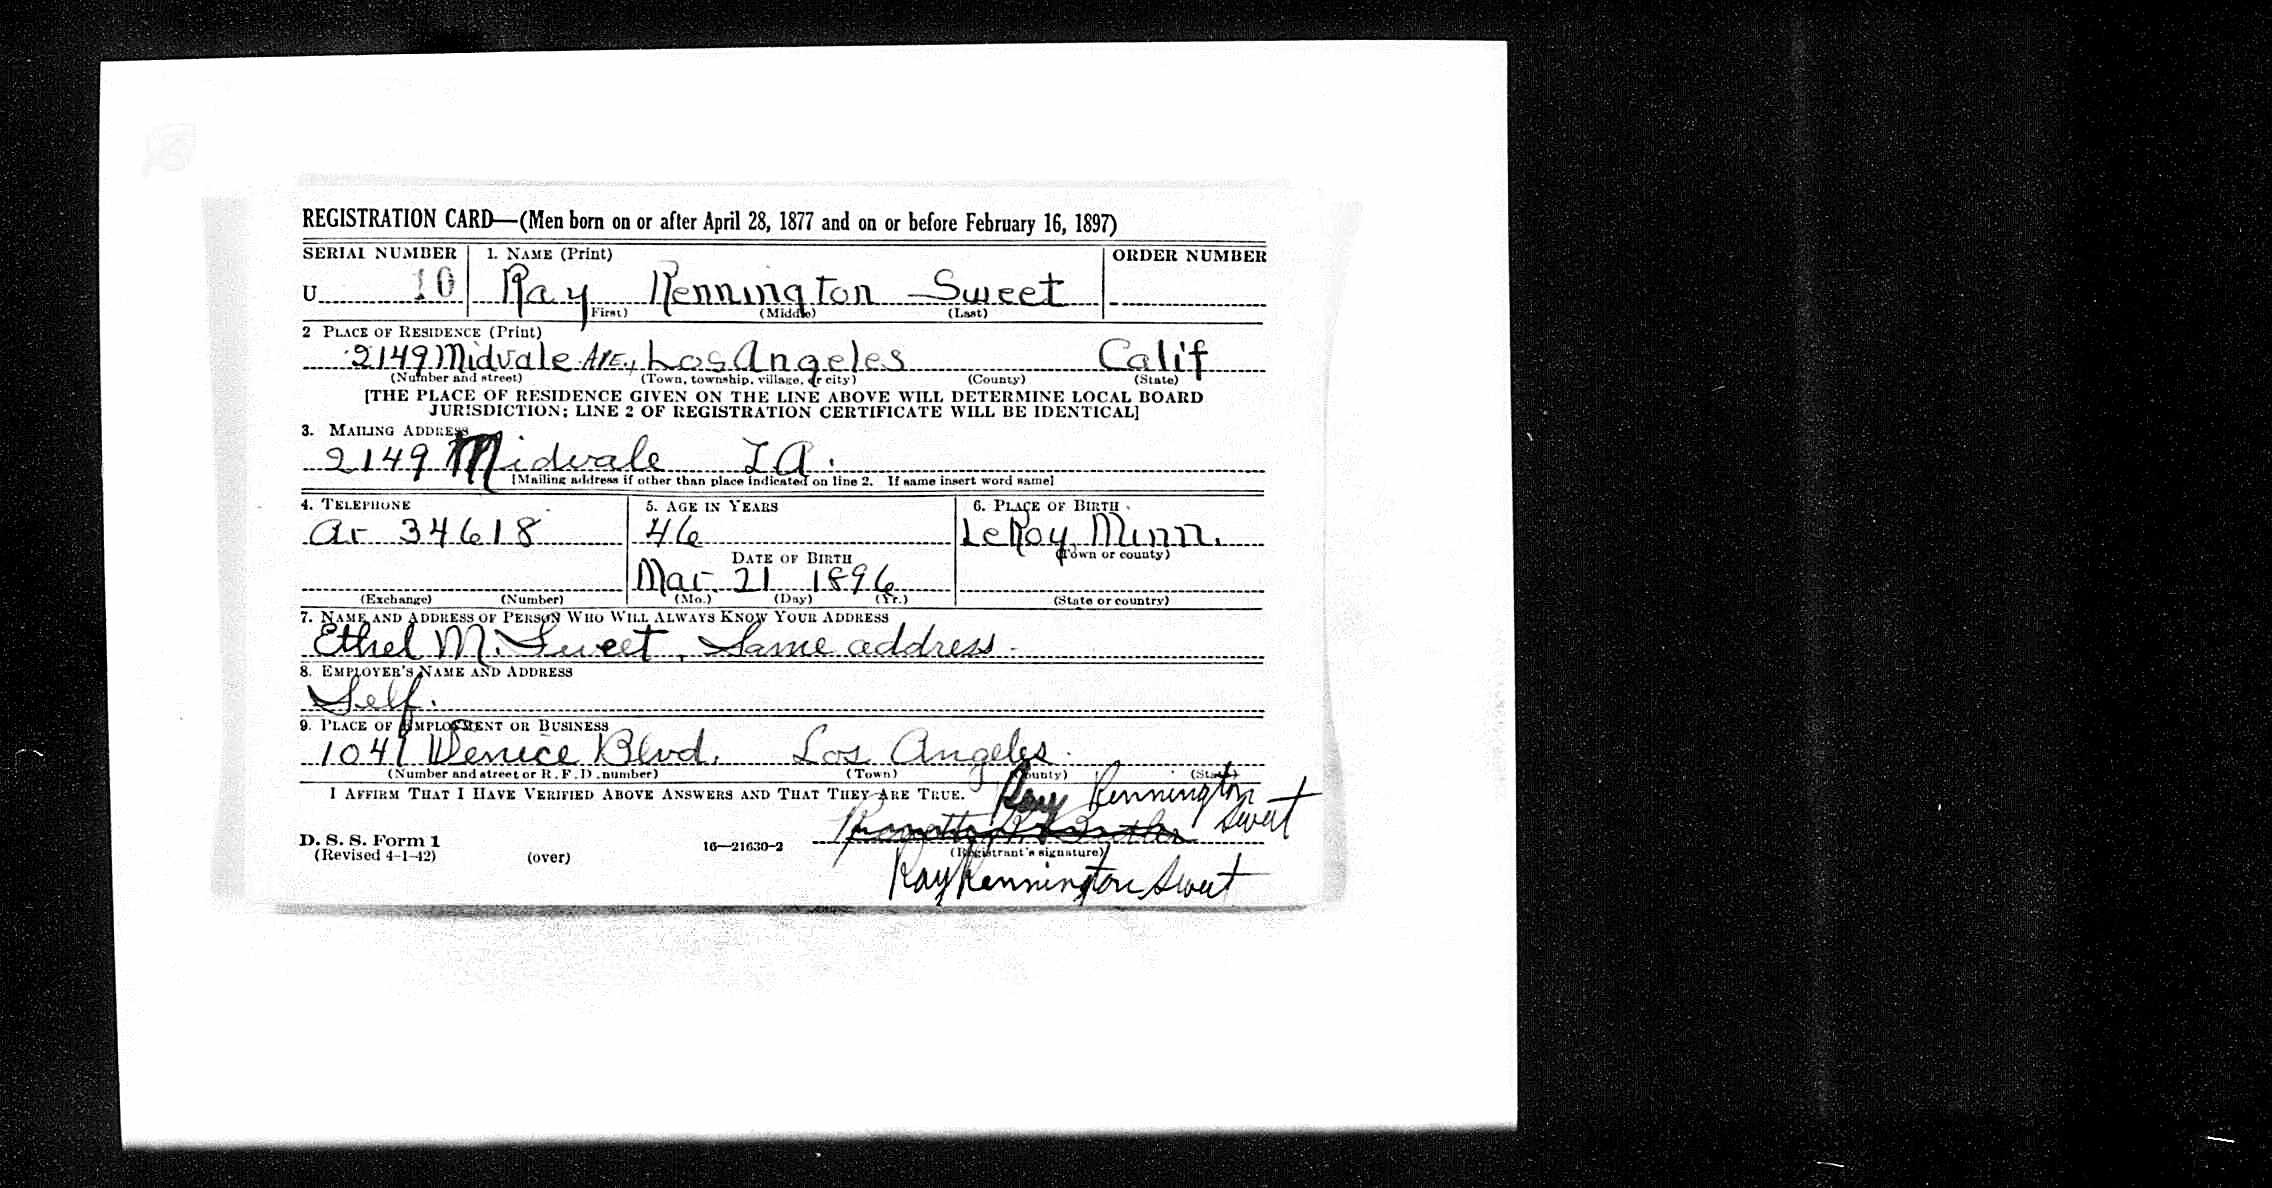 REGISTRATION CARD—(Men born on or after April 28, 1877 and on or before February 16, 1897)
SERIAL NUMBER 1. NAME (Print) ORDER NUMBER
U 10 Ray Rennington Sweet
(First) (Middle) (Last)
2 PLACE OF RESIDENCE (Print)
2149 Midvale AVE., Los Angeles Calif
(Number and street) (Town, township, village, or city) (County) (State)
[THE PLACE OF RESIDENCE GIVEN ON THE LINE ABOVE WILL DETERMINE LOCAL BOARD
JURISDICTION; LINE 2 OF REGISTRATION CERTIFICATE WILL BE IDENTICAL]
3. MAILING ADDRESS
2149 Midvale LA.
[Mailing address if other than place indicated on line 2. If same insert word same]
4. TELEPHONE 5. AGE IN YEARS 6. PLACE OF BIRTH
Ar 34618 46 LeRoy, Minn.
DATE OF BIRTH (Town or county)
Mar. 21 1896
(Exchange) (Number) (Mo.) (Day) (Yr.) (State or country)
7. NAME AND ADDRESS OF PERSON WHO WILL ALWAYS KNOW YOUR ADDRESS
Ethel M. Sweet, Same address
8. EMPLOYER'S NAME AND ADDRESS
Self.
9. PLACE OF EMPLOYMENT OR BUSINESS
1041 Venice Blvd. Los Angeles
(Number and street or R. F. D. number) (Town) (County) (State)
I AFFIRM THAT I HAVE VERIFIED ABOVE ANSWERS AND THAT THEY ARE TRUE. Ray Rennington
Sweet
D. S. S. Form 1
(Revised 4-1-42) (over) 16—21630-2 (Registrant's signature)
Ray Rennington Sweet